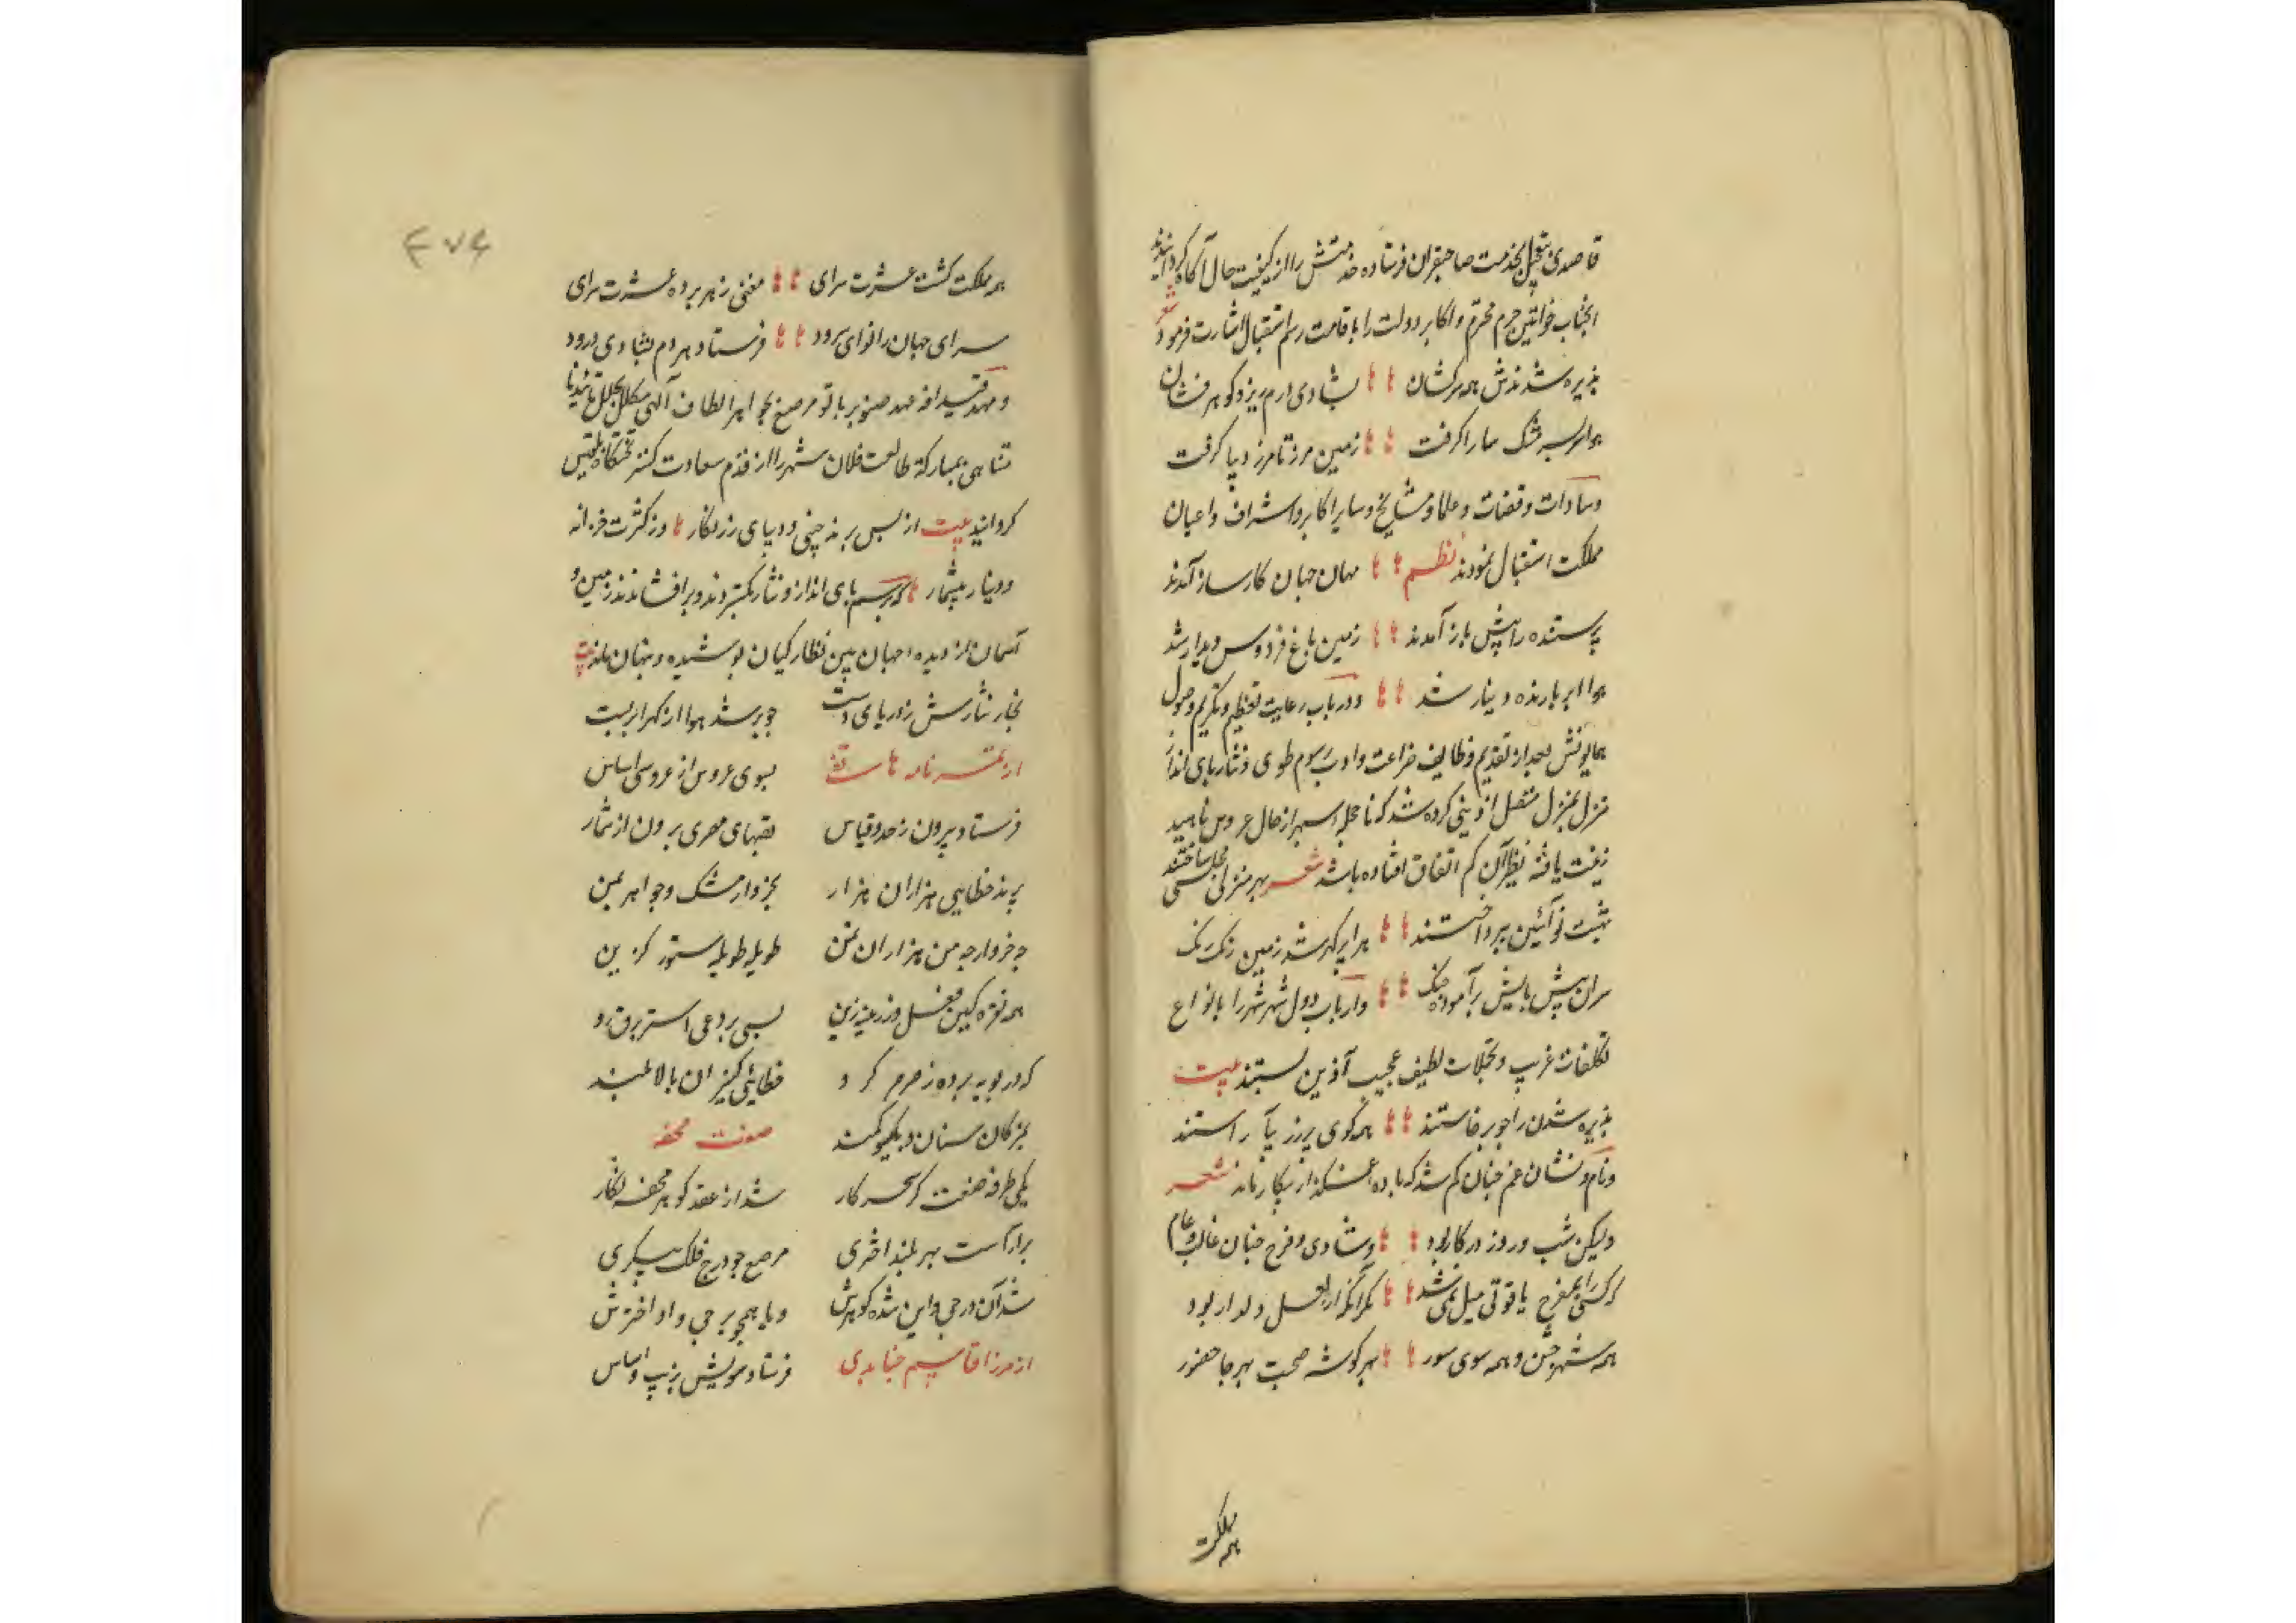 قاصدی بتعجیل بخدمت صاحبقران فرستاده خدمتش را از کیفیت حال آگاه گردانیدند
شعر
انجناب خواتین حرم محترم و اکابر دولت را باقامت رسم استقبال اشارت فرمود
پذیره شدندش همه سرکشان بشادی درم ریز و گوهر فشان
هوا سر بسر مشک سارا گرفت زمین مرز تا مرز دیبا گرفت
و سادات و قضات و علما و مشایخ و سایر اکابر و اشراف و اعیان
مملکت استقبال نمودند نظم مهان جهان کارساز آمدند
پرستنده را پیش باز آمدند زمین باغ فردوس دیدار شد
هوا ابر بارنده دینار شد و در باب رعایت تعظیم و تکریم وصول
همایونش بعد از تقدیم وظایف ضراعت و ادب رسوم طوی و نثار پای انداز
منزل بمنزل متصل از دینی کرده شد که تا حجله سپهر از جمال عروس ناهید
زینت یافته نظیر آن کم اتفاق افتاده باشد شعر بهر منزلی مجلسی ساختند
بهشت نو آئین بپرداختند برابر گهر شد زمین رنگ رنگ
سران پیش پایش برآموده چنگ و ارباب دول شهر شهر را بانواع
تکلفات غریب و تجملات لطیف عجیب آذین بستند بیت
پذیره شدن را چو برخاستند همه کوی و برزن بیآراستند
و نام و نشان غم چنان کم شد که باده غمگذار بیکار ماند شعر
ولیکن شب و روز در کار بود و شادی و فرح چنان غالب و عام
که کسی را بمفرح یاقوتی میل نمی‌شد مگر آنکز لعل دلدار بود
همه شهر جشن و همه سوی سور بهر گوشه صحبت بهر جا حضور
همه مملکت
۴۷۶
همه مملکت گشت عشرت سرای مغنی زهر پرده عشرت سرای
سرای جهان را نوای سرود فرستاد هر دم بشادی درود
و مهد قیدافه عهد صنوبر بانو مرصع بجواهر الطاف آلهی مکلل بجلل تأییدات نا
متناهی بمبارکه طالعت فلان شهر را از قدم سعادت گستر تختگاه بلقیس
گردانید بیت از بس برنه چینی و دیبای زرنگار وز کثرت خزانه
و دینار بیشمار که برسم پای انداز و نثار بگستردند و برافشاندند زمین و
آسمان از دیده جهان بین نظارگیان پوشیده و پنهان ماند بیت
بخار نثارش ز دریای دست چو بر شد هوا از گهر ابر بست
از تمر نامه هاتفی بسوی عروس از عروسی اساس
فرستاد بیرون ز حد و قیاس بقبهای مصری برون از شمار
پرند خطایی هزاران هزار بخروار مشک و جواهر بمن
چه خروار چه من هزاران بمن طویله طویله ستور گزین
همه نقره گین نعل و زرینه زین بسی بردعی استر برق رو
که در پویه برده ز صرصر گرو خطائی کنیزان بالا بلند
بمژگان سنان و بگیسو کمند صفت محفه
یکی طرفه صنعت گر سحر کار شد از عقد گوهر محفه نگار
برآراست بهر بلند اختری مرصع چو درج فلک پیکری
شد آن درجی و این شده گوهرش و یا همچو برجی و او اخترش
از مرزا قاسم جنابدی فرستاد مویش بزیب و اساس